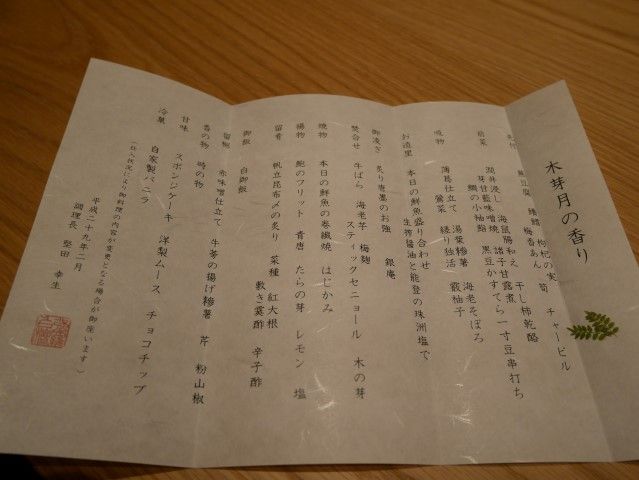 木芽月の香り
先付
黒豆腐 鱶鰭 枸杞の実 筍 チャービル
梅香あん
前菜
干し柿乾酪
海鼠勝和え
潤井浸し 諸子甘露煮 一寸豆串打ち
芽甘藍味噌焼 黒豆かすてら
鯛の小袖鮨
吸物
薄葛仕立て 湯葉糝薯 海老そぼろ
鶯菜 縒り独活 叢柚子
お造里
本日の鮮魚盛り合わせ
生搾醤油と能登の珠洲塩で
御凌ぎ
炙り唐墨のお強 銀庵
焚合せ
牛ばら 海老芋 梅麹
スティックセニョール 木の芽
焼物
本日の鮮魚の巻繊焼 はじかみ
揚物
鮑のフリット 青唐 たらの芽 レモン 塩
留肴
帆立昆布〆の炙り 菜種 紅大根
敷き霙酢 辛子酢
御飯
白御飯
留椀
赤味噌仕立て 牛蒡の揚げ糝薯 芹 粉山椒
香の物
時の物
甘味
スポンジケーキ 洋梨ムース チョコチップ
冷菓
自家製バニラ
(仕入状況により御料理の内容が変更となる場合が御座います)
平成二十九年二月
調理長 堅田 幸生